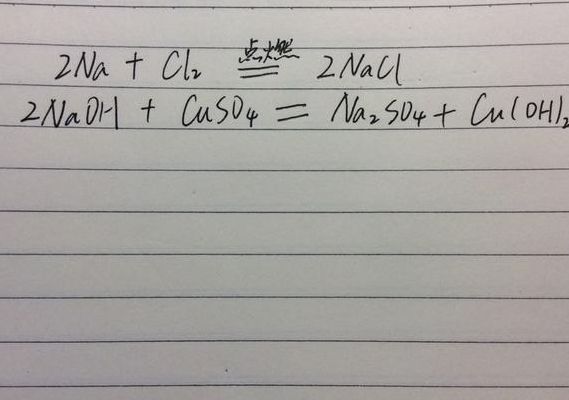 2Na + Cl₂ 点燃 = 2NaCl
2NaOH + CuSO₄ = Na₂SO₄ + Cu(OH)₂